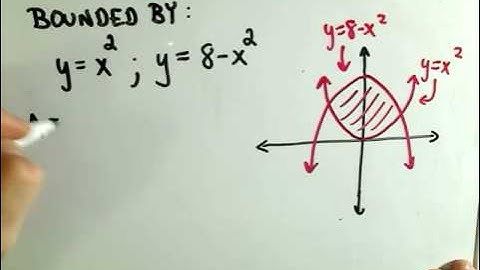 BOUNDED BY:
y = x² ; y = 8 - x²
y=8-x²
y=x²